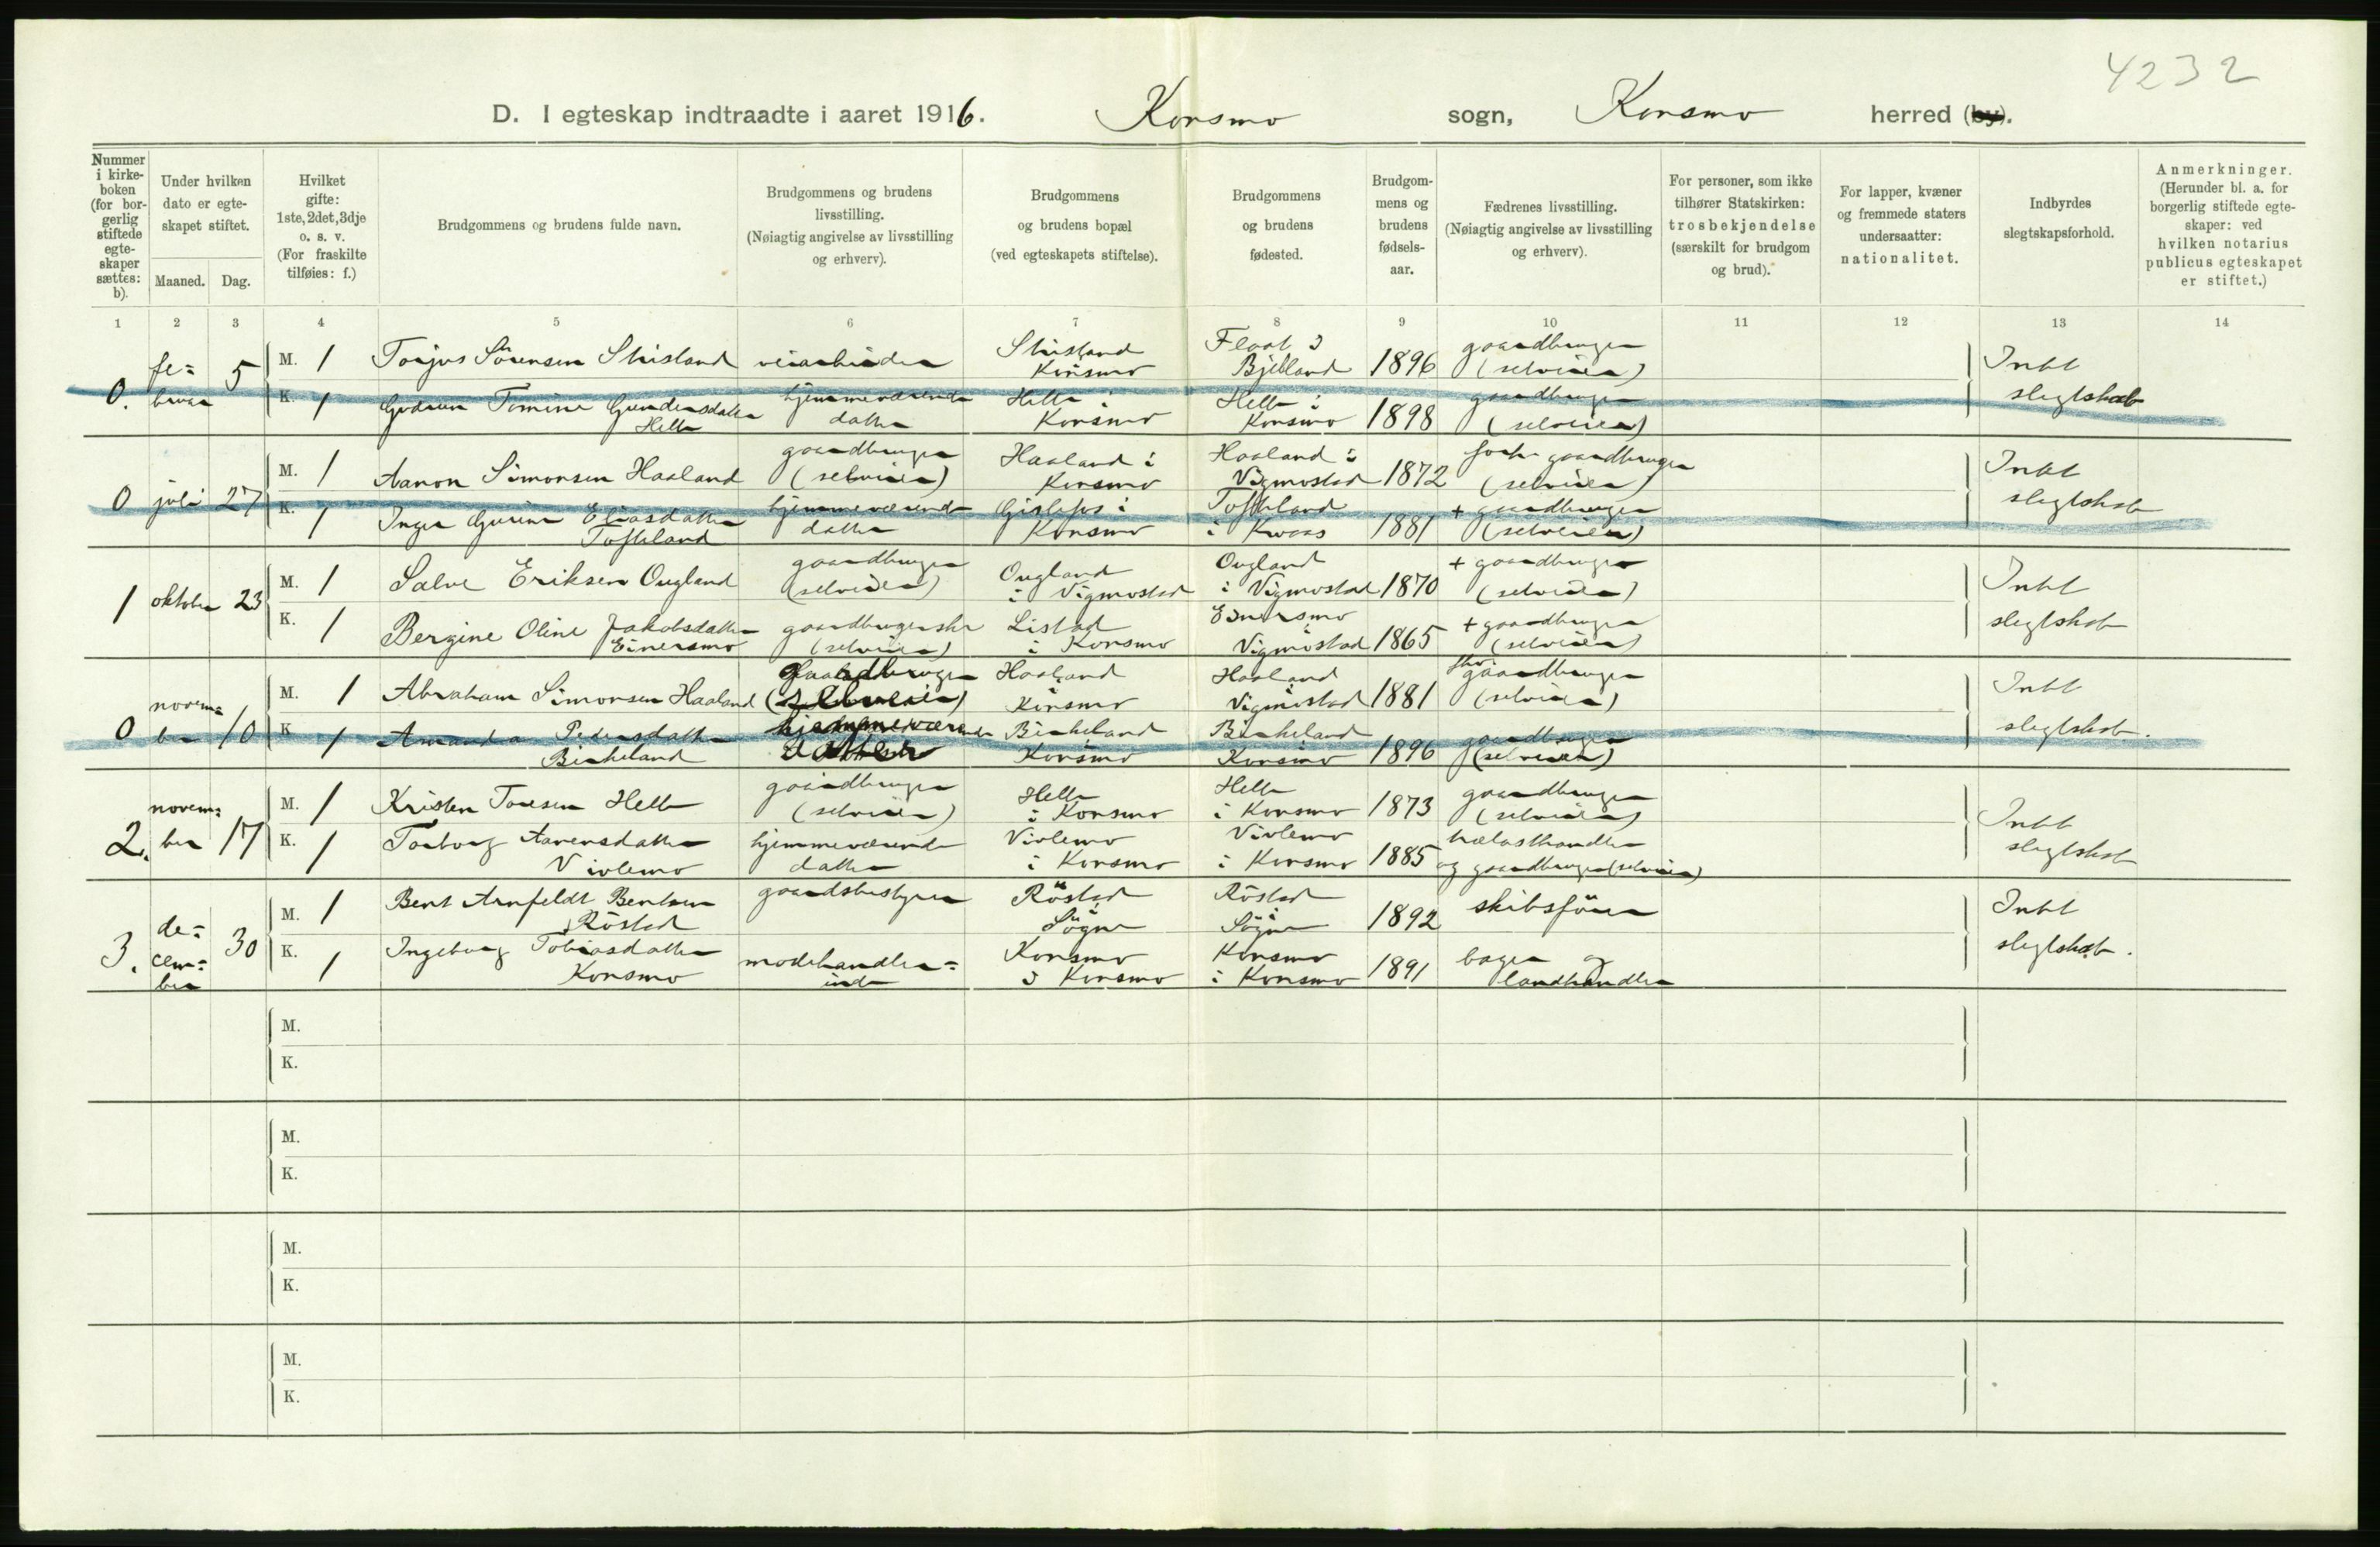 4232
D. I egteskap indtraadte i aaret 1916. Konsmo sogn, Konsmo herred (by).
Nummer i kirke- boken (for bor- gerlig stiftede egte- skaper sættes: b).
Under hvilken dato er egte- skapet stiftet.
Maaned. Dag.
Hvilket gifte: 1ste, 2det, 3dje o. s. v. (For fraskilte tilføies: f.)
Brudgommens og brudens fulde navn.
Brudgommens og brudens livsstilling. (Nøiagtig angivelse av livsstilling og erhverv).
Brudgommens og brudens bopæl (ved egteskapets stiftelse).
Brudgommens og brudens fødested.
Brudgom- mens og brudens fødsels- aar.
Fædrenes livsstilling. (Nøiagtig angivelse av livsstilling og erhverv).
For personer, som ikke tilhører Statskirken: trosbekjendelse (særskilt for brudgom og brud).
For lapper, kvæner og fremmede staters undersaatter: nationalitet.
Indbyrdes slegtskapsforhold.
Anmerkninger. (Herunder bl. a. for borgerlig stiftede egte- skaper: ved hvilken notarius publicus egteskapet er stiftet.)
1 2 3 4 5 6 7 8 9 10 11 12 13 14
0. februar 5 M. 1 Torjus Sörensen Stusland veiarbeider Konsmo Bjelland 1896 gaardbruger (selveier) Intet slegtskab
K. 1 Gudrun Tomine Gundersdatter Helle hjemmeværende datter Helle i Konsmo Helle i Konsmo 1898 gaardbruger (selveier)
0 juli 27 M. 1 Aanon Simonsen Haaland gaardbruger (selveier) Haaland i Konsmo Haaland i Vigmostad 1872 gaardbruger (selveier) Intet slegtskab
K. 1 Inger Gurine Eliasdatter Tofteland hjemmeværende datter Gislefos i Konsmo Tofteland i 1881 + gaardbruger (selveier)
1 oktober 23 M. 1 Salve Eriksen Ougland gaardbruger (selveier) Ougland i Vigmostad Ougland i Vigmostad 1870 + gaardbruger (selveier) Intet slegtskab
K. 1 Bergine Oline Jakobsdatter Einersmo gaardbrugerske (selveier) Listad i Konsmo Einersmo Vigmostad 1865 + gaardbruger (selveier)
0 november 10 M. 1 Abraham Simonsen Haaland Gaardbruger (selveier) Haaland i Konsmo Haaland Vigmostad 1881 gaardbruger (selveier) Intet slegtskab.
K. 1 Amanda Pedersdatter Birkeland hjemmeværende datter Birkeland Konsmo Birkeland Konsmo 1896 gaardbruger (selveier)
2. november 17 M. 1 Kristen Toresen Helle gaardbruger (selveier) Helle i Konsmo Helle i Konsmo 1873 gaardbruger (selveier) Intet slegtskab
K. 1 Torborg Aanensdatter Violemo hjemmeværende datter Viblemo i Konsmo Viblemo i Konsmo 1885 trælasthandler og gaardbruger (selveier)
3. december 30 M. 1 Bent Arnfeldt Bentsen Röstad gaardsbestyrer Röstad i Sögne Röstad i Sögne 1892 skibsförer Intet slegtskab.
K. 1 Ingeborg Tobiasdatter Konsmo modehandler=inde Konsmo i Konsmo Konsmo i Konsmo 1891 bager og landhandler
M.
K.
M.
K.
M.
K.
M.
K.